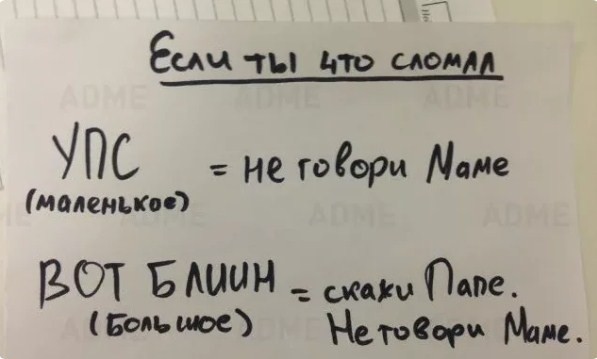 Если ты что сломал
УПС = не говори Маме
(маленькое)
ВОТ БЛИИН = скажи Папе.
(Большое) Не говори Маме.
ADME ADME ADME
ADME ADME ADME
ADME ADME ADME